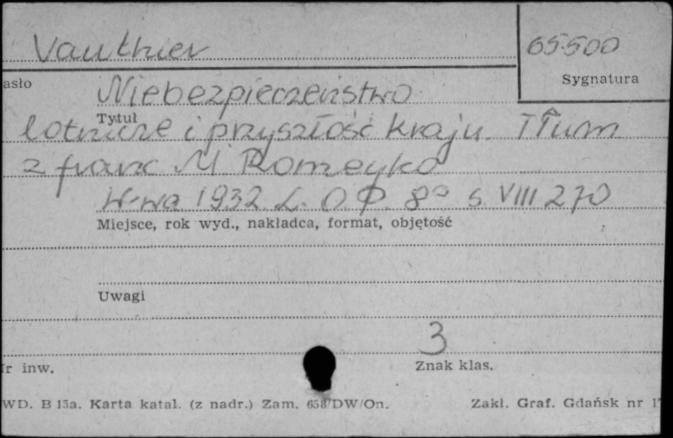 Vauthier 65500
asło Sygnatura
Niebezpieczeństwo
Tytuł
lotnicze i przyszłość kraju. Tłum
z franc M Romeyko
W-wa 1932 L. O P. 8° s VIII 270
Miejsce, rok wyd., nakładca, format, objętość
Uwagi
3
r inw. Znak klas.
WD. B 15a. Karta katal. (z nadr.) Zam. 658/DW/On. Zakł. Graf. Gdańsk nr 1